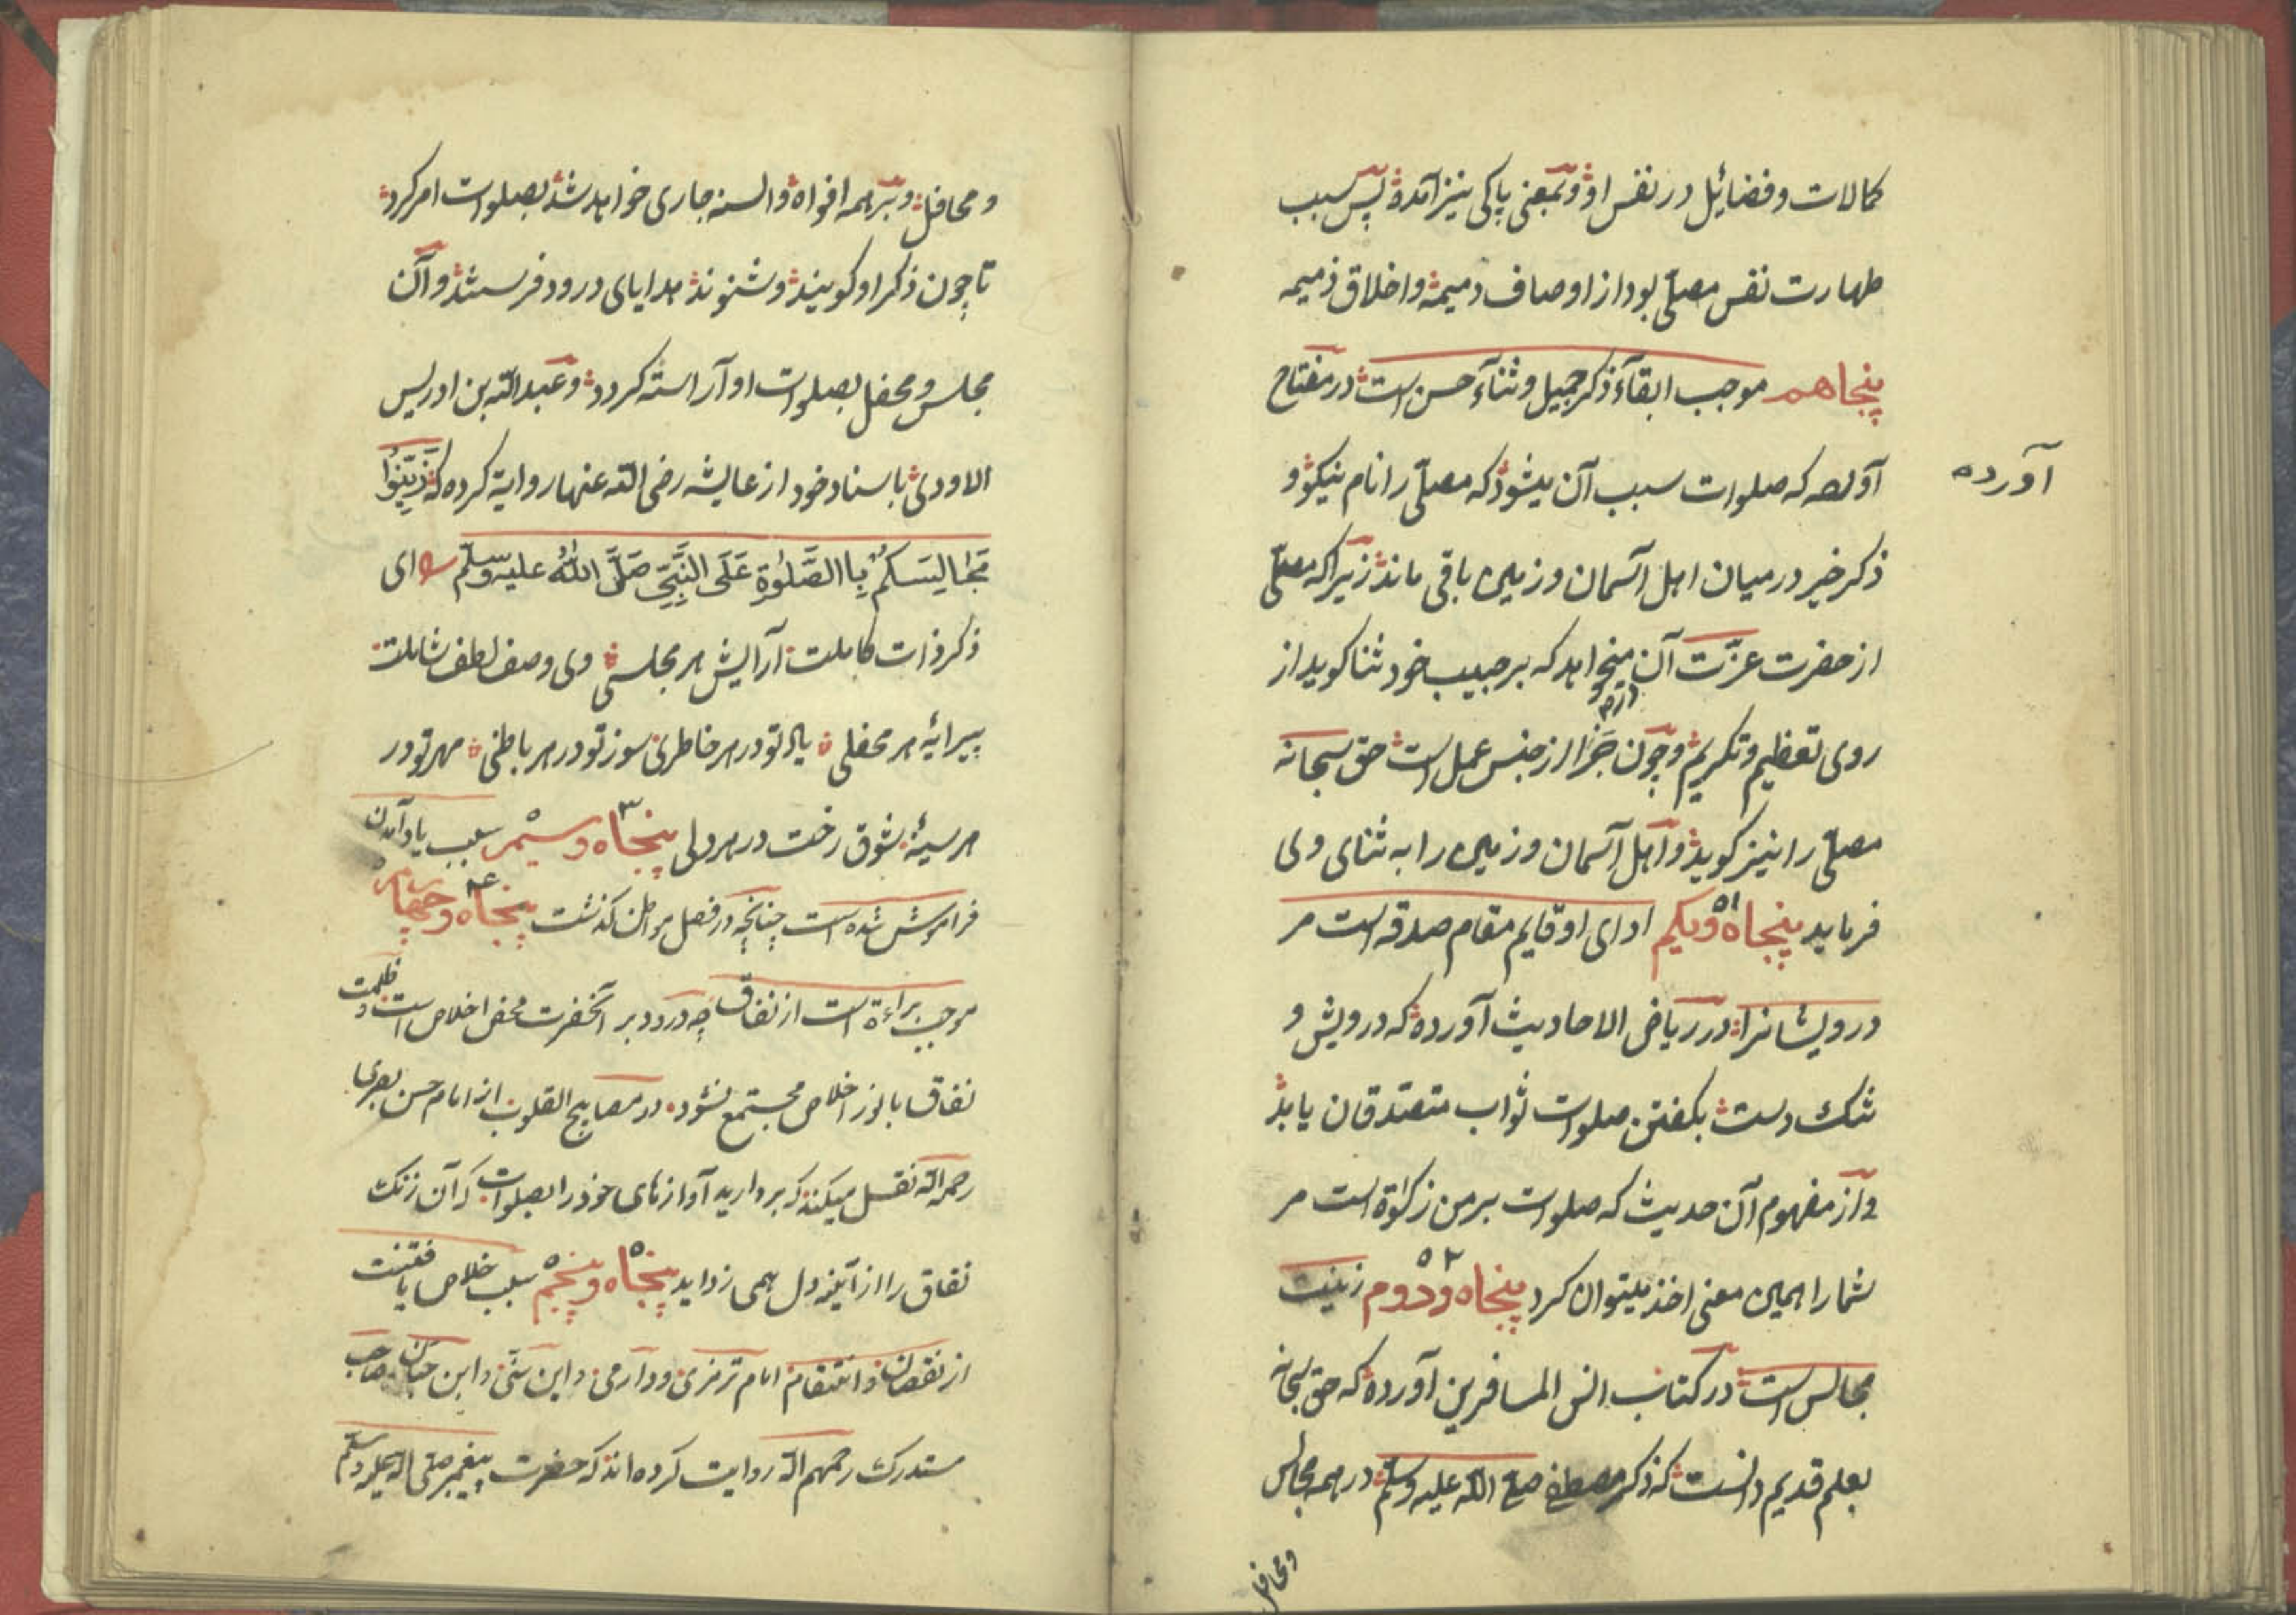 کمالات و فضائیل در نفس او و بمعنی پاکی نیز آمده پس سبب
طهارت نفس مصلّی بود از اوصاف دمیمه و اخلاق ذمیمه
پنجاهم موجب ابقآء ذکر جمیل و ثنآء حسن است در مفتاح
آورده
آولصه که صلوات سبب آن میشود که مصلّی را نام نیکو و
ذکر خیر در میان اهل آسمان و زمین باقی ماند زیرا که مصلّی
از حضرت عزّت آن میخواهد که بر حبیب خود ثنا کوید از
روی تعظیم و تکریم و چون جَزا از جنس عمل است حق سبحانه
مصلّی را نیز کوید و اهل آسمان و زمین را به ثنای وی
فرماید پنجاه و یکم ۵۱ ادای او قایم مقام صدقه است مر
درویشانرا در ریاض الاحادیث آورده که درویش و
تنک دست بکفتن صلوات ثواب متصدقان یابد
و از مفهوم آن حدیث که صلوات بر من زکوٰة است مر
شما را همین معنی اخذ میتوان کرد پنجاه و دوم ۵۲ زینت
مجالس است در کتاب انس المسافرین آورده که حق سبحانه
بعلم قدیم دانست که ذکر مصطفی صلی الله علیه وسلّم در همه مجالس
و محافل
و محافل و بر همه افواه و السنه جاری خواهد شد بصلوات امر کرد
تا چون ذکر او کویند و شنوند هدایای درود فرستند و آن
مجلس و محفل بصلوات او آراسته کردد و عبدالله بن ادریس
الاودی باسناد خود از عایشه رضی الله عنها روایة کرده که زَیِّنُوا
مَجَالِسَکُمْ بِاالصَّلٰوةِ عَلَی النَّبِیِّ صَلَّی اللهُ علیه وسلّم ای
ذکر ذات کاملت آرایش هر مجلسی وی وصف لطف شاملت
پیرائه هر محفلی یاد تو در هر خاطری سوز تو در هر باطنی مهر تو در
هر سینهٔ شوق رخت در هر دلی پنجاه و سیم ۵۳ سبب یاد آمدن
فراموش شده است چنانچه در فصل مواطن کذشت پنجاه و چهارم ۵۴
موجب براءة است از نفاق چه درود بر آنحضرت محض اخلاص است و ظلمت
نفاق با نور اخلاص مجتمع نشود در مصابیح القلوب از امام حسن بصری
رحمه الله نقل میکند که بردارید آوازهای خود را بصلوات که آن زنک
نفاق را از آینه دل همی زداید پنجاه و پنجم ۵۵ سبب خلاص یافتنست
از نقصان و انتقام امام ترمزی و دارمی و ابن سنّی و ابن حبّان و صاحب
مستدرک رحمهم الله روایت کرده اند که حضرت پیغمبر صلّی الله علیه وسلّم